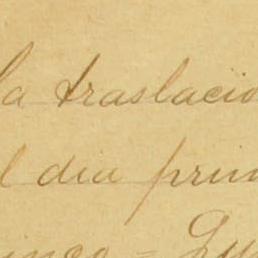 la traslacio
l dia prim